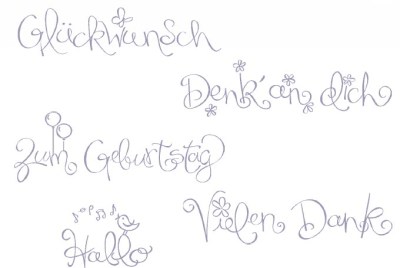 Glückwunsch
Denk'an dich
Zum Geburtstag
Vielen Dank
Hallo